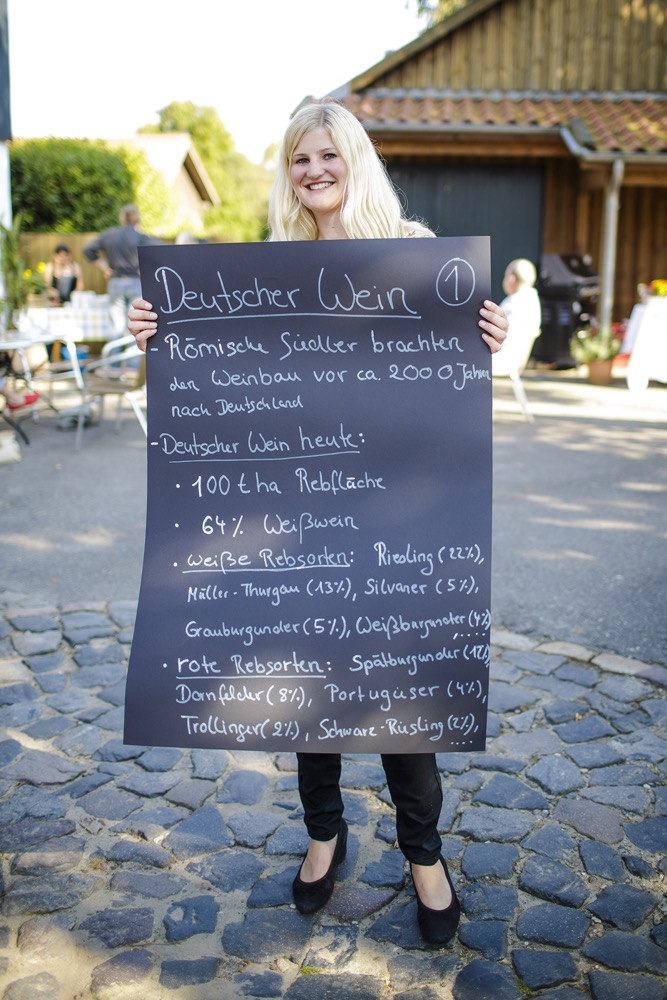 Deutscher Wein 1
- Römische Siedler brachten
den Weinbau vor ca. 2000 Jahren
nach Deutschland
- Deutscher Wein heute:
• 100 t ha Rebfläche
• 64% Weißwein
• weiße Rebsorten: Riesling (22%),
Müller-Thurgau (13%), Silvaner (5%),
Grauburgunder (5%), Weißburgunder (4%)
....
• rote Rebsorten: Spätburgunder (12%),
Dornfelder (8%), Portugieser (4%),
Trollinger (2%), Schwarz-Riesling (2%),
....